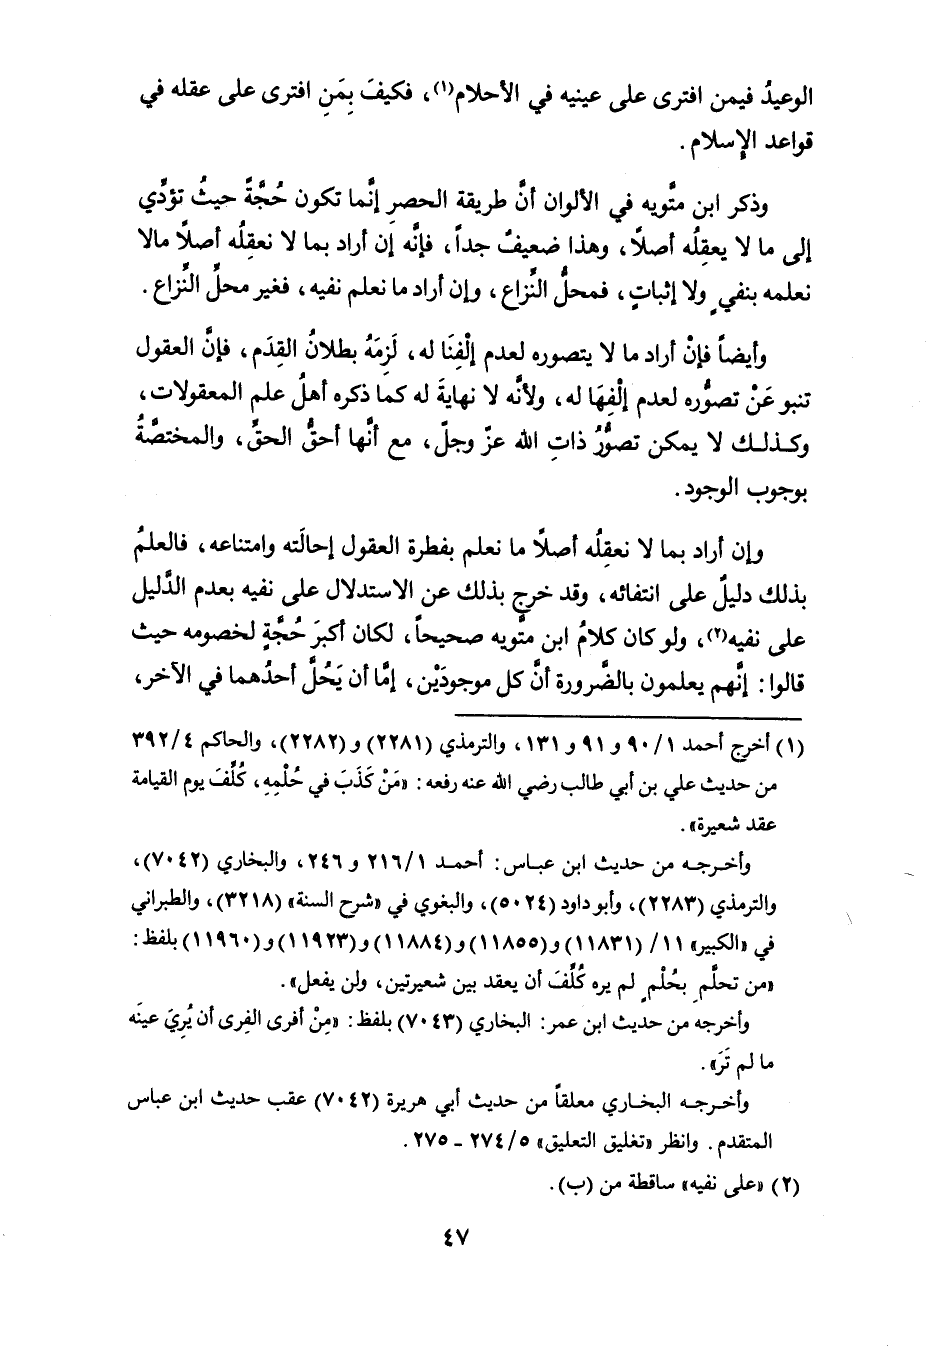 الوعيدُ فيمن افترى على عينيه في الأحلام(١)، فكيفَ بِمَنِ افترى على عقله في
قواعد الإِسلام.
وذكر ابن متُّويه في الألوان أنَّ طريقة الحصرِ إنَّما تكون حُجَّةً حيثُ تؤدِّي
إلى ما لا يعقِلُه أصلًا، وهذا ضعيفٌ جداً، فإنَّه إن أراد بما لا نعقِلُه أصلًا مالا
نعلمه بنفيٍ ولا إثباتٍ، فمحلُّ النِّزاع، وإن أراد ما نعلم نفيه، فغير محلِّ النِّزاع.
وأيضاً فإنْ أراد ما لا يتصوره لعدم إلْفِنَا له، لَزِمَهُ بطلانُ القِدَم، فإنَّ العقول
تنبو عَنْ تصوُّره لعدم إلْفِهَا له، ولأنَّه لا نهايةَ له كما ذكره أهلُ علم المعقولات،
وكذلك لا يمكن تصوُّرُ ذاتِ الله عزّ وجلّ، مع أنَّها أحقُّ الحقِّ، والمختصَّةُ
بوجوب الوجود.
وإن أراد بما لا نعقِلُه أصلًا ما نعلم بفطرة العقول إحالَته وامتناعه، فالعلمُ
بذلك دليلٌ على انتفائه، وقد خرج بذلك عن الاستدلال على نفيه بعدم الدَّليل
على نفيه(٢)، ولو كان كلامُ ابن متُّويه صحيحاً، لكان أكبرَ حُجَّةٍ لخصومه حيث
قالوا: إنَّهم يعلمون بالضَّرورة أنَّ كل موجودَيْن، إمَّا أن يَحُلَّ أحدُهما في الآخر،
(١) أخرج أحمد ٩٠/١ و ٩١ و ١٣١، والترمذي (٢٢٨١) و (٢٢٨٢)، والحاكم ٣٩٢/٤
من حديث علي بن أبي طالب رضي الله عنه رفعه: «مَنْ كَذَبَ في حُلْمِهِ، كُلِّفَ يوم القيامة
عقد شعيرة».
وأخرجه من حديث ابن عباس: أحمد ٢١٦/١ و ٢٤٦، والبخاري (٧٠٤٢)،
والترمذي (٢٢٨٣)، وأبو داود (٥٠٢٤)، والبغوي في «شرح السنة» (٣٢١٨)، والطبراني
في «الكبير» ١١/ (١١٨٣١) و(١١٨٥٥) و(١١٨٨٤) و(١١٩٢٣) و(١١٩٦٠) بلفظ:
«من تحلَّم بحُلْمٍ لم يره كُلِّفَ أن يعقد بين شعيرتين، ولن يفعل».
وأخرجه من حديث ابن عمر: البخاري (٧٠٤٣) بلفظ: «مِنْ أفرى الفِرى أن يُرِيَ عينَه
ما لم تَرَ».
وأخرجه البخاري معلقاً من حديث أبي هريرة (٧٠٤٢) عقب حديث ابن عباس
المتقدم. وانظر «تغليق التعليق» ٢٧٤/٥ - ٢٧٥.
(٢) «على نفيه» ساقطة من (ب).
٤٧